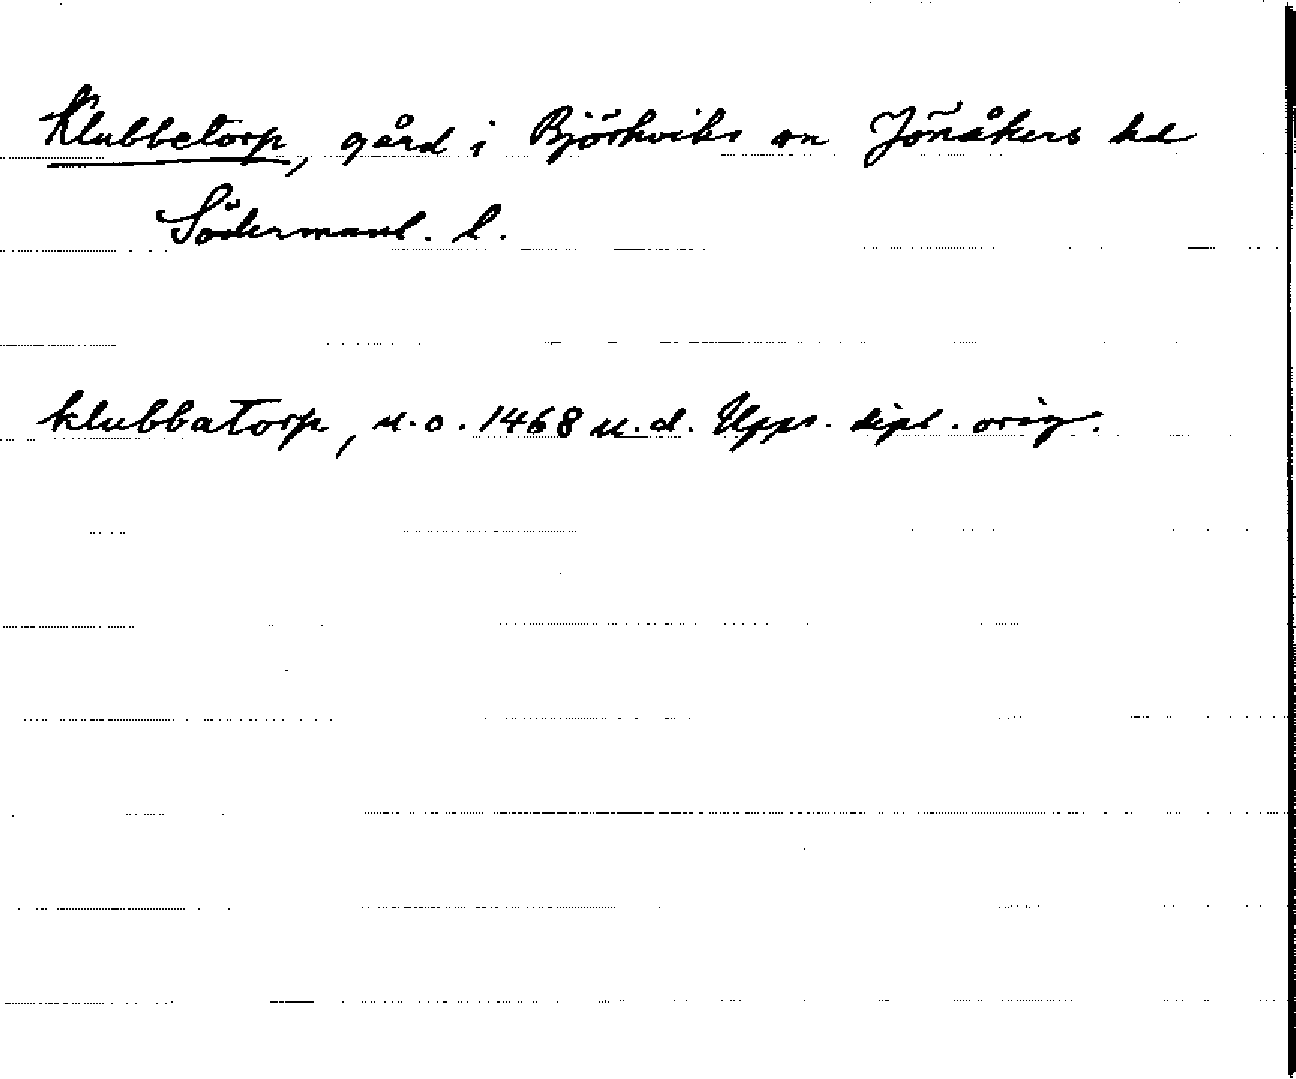 Klubbetorp, gård i Björkviks sn Jönåkers hd
Södermanl. l.
klubbatorp, u.o. 1468 u.d. Upps. dipl. orig.